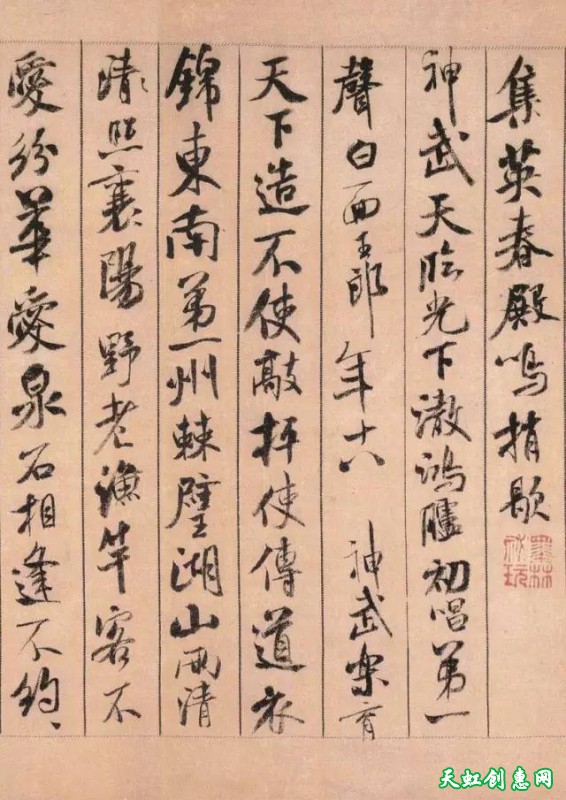 集英春殿鳴捎歇
神武天臨光下澈鴻臚初唱第一
聲白面玉郎年十八 神武樂育
天下造不使敲枰使傳道衣
錦東南第一州棘璧湖山兩清
照襄陽野老漁竿客不
愛紛華愛泉石相逢不約
墨林秘玩
天虹创惠网